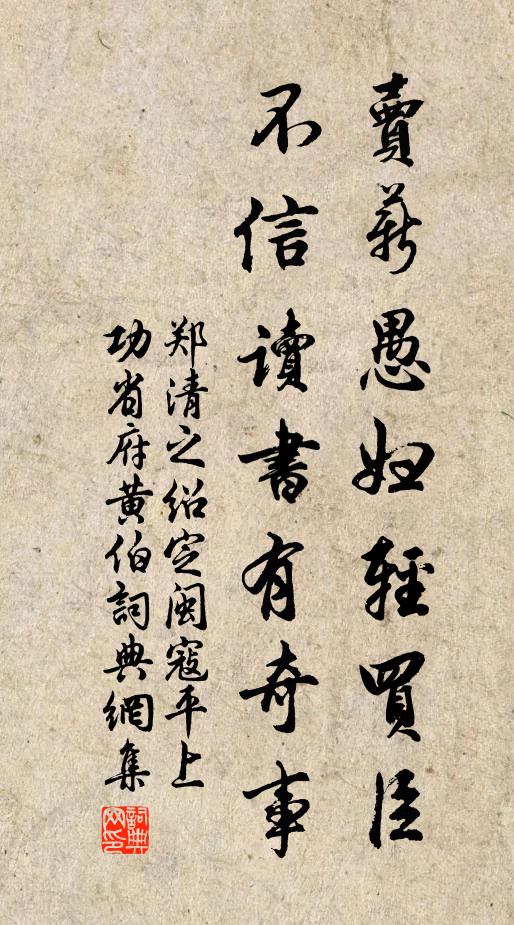 賣薪愚婦輕買臣
不信讀書有奇事
郑清之绍定闽寇平上
功省府黄伯詞典網集
詞典網印